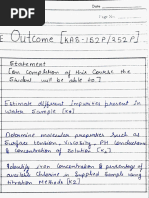 Date
Expt No.
E Outcome [KAS-152P/252P]
Statement
(on Completion of this Course the
Student will be able to.)
Estimate different impurities present in
Water Sample [K3]
Determine molecular properties such as
Surface tension, Viscosity, PH Conductance
& concentration of Solution [K2]
Identify iron Concentration & percentage of
available Chlorine in Supplied Sample using
titration Methods [K2]